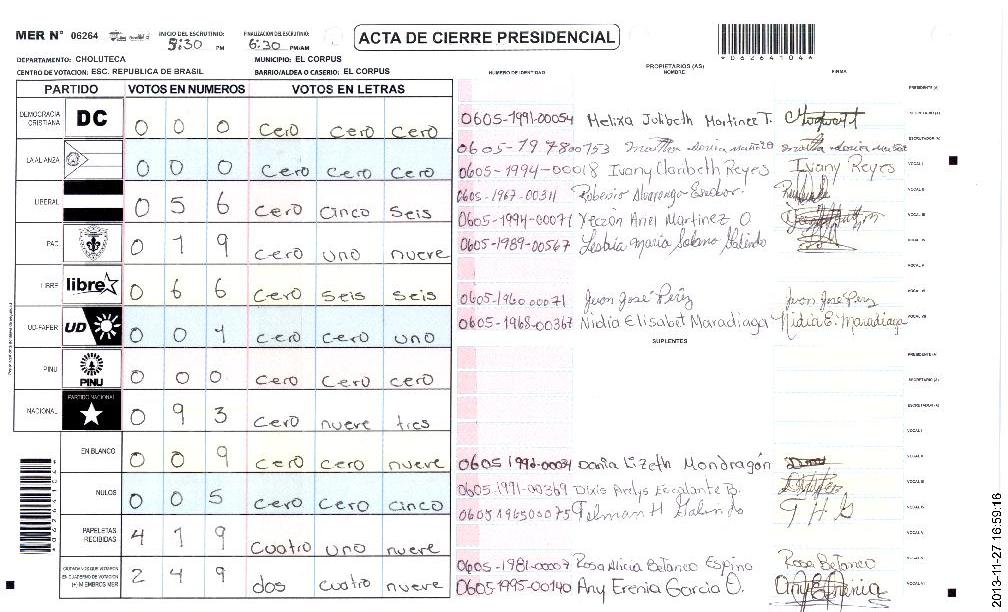 MER N° 06264
INICIO DEL ESCRUTINIO: 5:30 PM
FINALIZACION DEL ESCRUTINIO: 6:30 PM/AM
ACTA DE CIERRE PRESIDENCIAL
*06264104*
DEPARTAMENTO: CHOLUTECA
MUNICIPIO: EL CORPUS
CENTRO DE VOTACION: ESC. REPUBLICA DE BRASIL
BARRIO/ALDEA O CASERIO: EL CORPUS
PARTIDO VOTOS EN NUMEROS VOTOS EN LETRAS
NUMERO DE IDENTIDAD PROPIETARIOS (AS) NOMBRE FIRMA
DEMOCRACIA CRISTIANA DC 0 0 0 cero cero cero
LA ALIANZA 0 0 0 cero cero cero
LIBERAL 0 5 6 cero cinco seis
PAC 0 1 9 cero uno nueve
LIBRE libre 0 6 6 cero seis seis
UD-FAPER UD 0 0 1 cero cero uno
PINU PINU 0 0 0 cero cero cero
NACIONAL PARTIDO NACIONAL 0 9 3 cero nueve tres
EN BLANCO 0 0 9 cero cero nueve
NULOS 0 0 5 cero cero cinco
PAPELETAS RECIBIDAS 4 1 9 cuatro uno nueve
CIUDADANOS QUE VOTARON EN CUADERNO DE VOTACION (+) MIEMBROS MER 2 4 9 dos cuatro nueve
PRESIDENTE (A)
SECRETARIO (A)
0605-1991-00054 Melixa Julibeth Martinez T.
ESCRUTADOR (A)
0605-197800153
VOCAL I
0605-1994-00018 Ivany Claribeth Reyes Ivany Reyes
VOCAL II
0605-1967-00311
VOCAL III
0605-1994-00071 Yeczon Ariel Martinez O
VOCAL IV
0605-1989-00567 Maria
VOCAL V
VOCAL VI
0605-1960 00071 Juan José Périz Juan José Perz
VOCAL VII
0605-1968-00367 Nidia Elisabet Maradiaga Nidia E. Maradiaga
SUPLENTES
PRESIDENTE (A)
SECRETARIO (A)
ESCRUTADOR (A)
VOCAL I
VOCAL II
0605 1992-00034 Dania Lizeth Mondragón
VOCAL III
0605-1991-00369 Dixis Arelys Escalante B.
VOCAL IV
0605196500075 Telman H Galindo T H G
VOCAL V
0605-1981-00007 Rosa Alicia Betanco Espino Rosa Betanco
VOCAL VI
06051995-00140 Any Erenia Garcia O. Any Erenia
2013-11-27 16:59:16